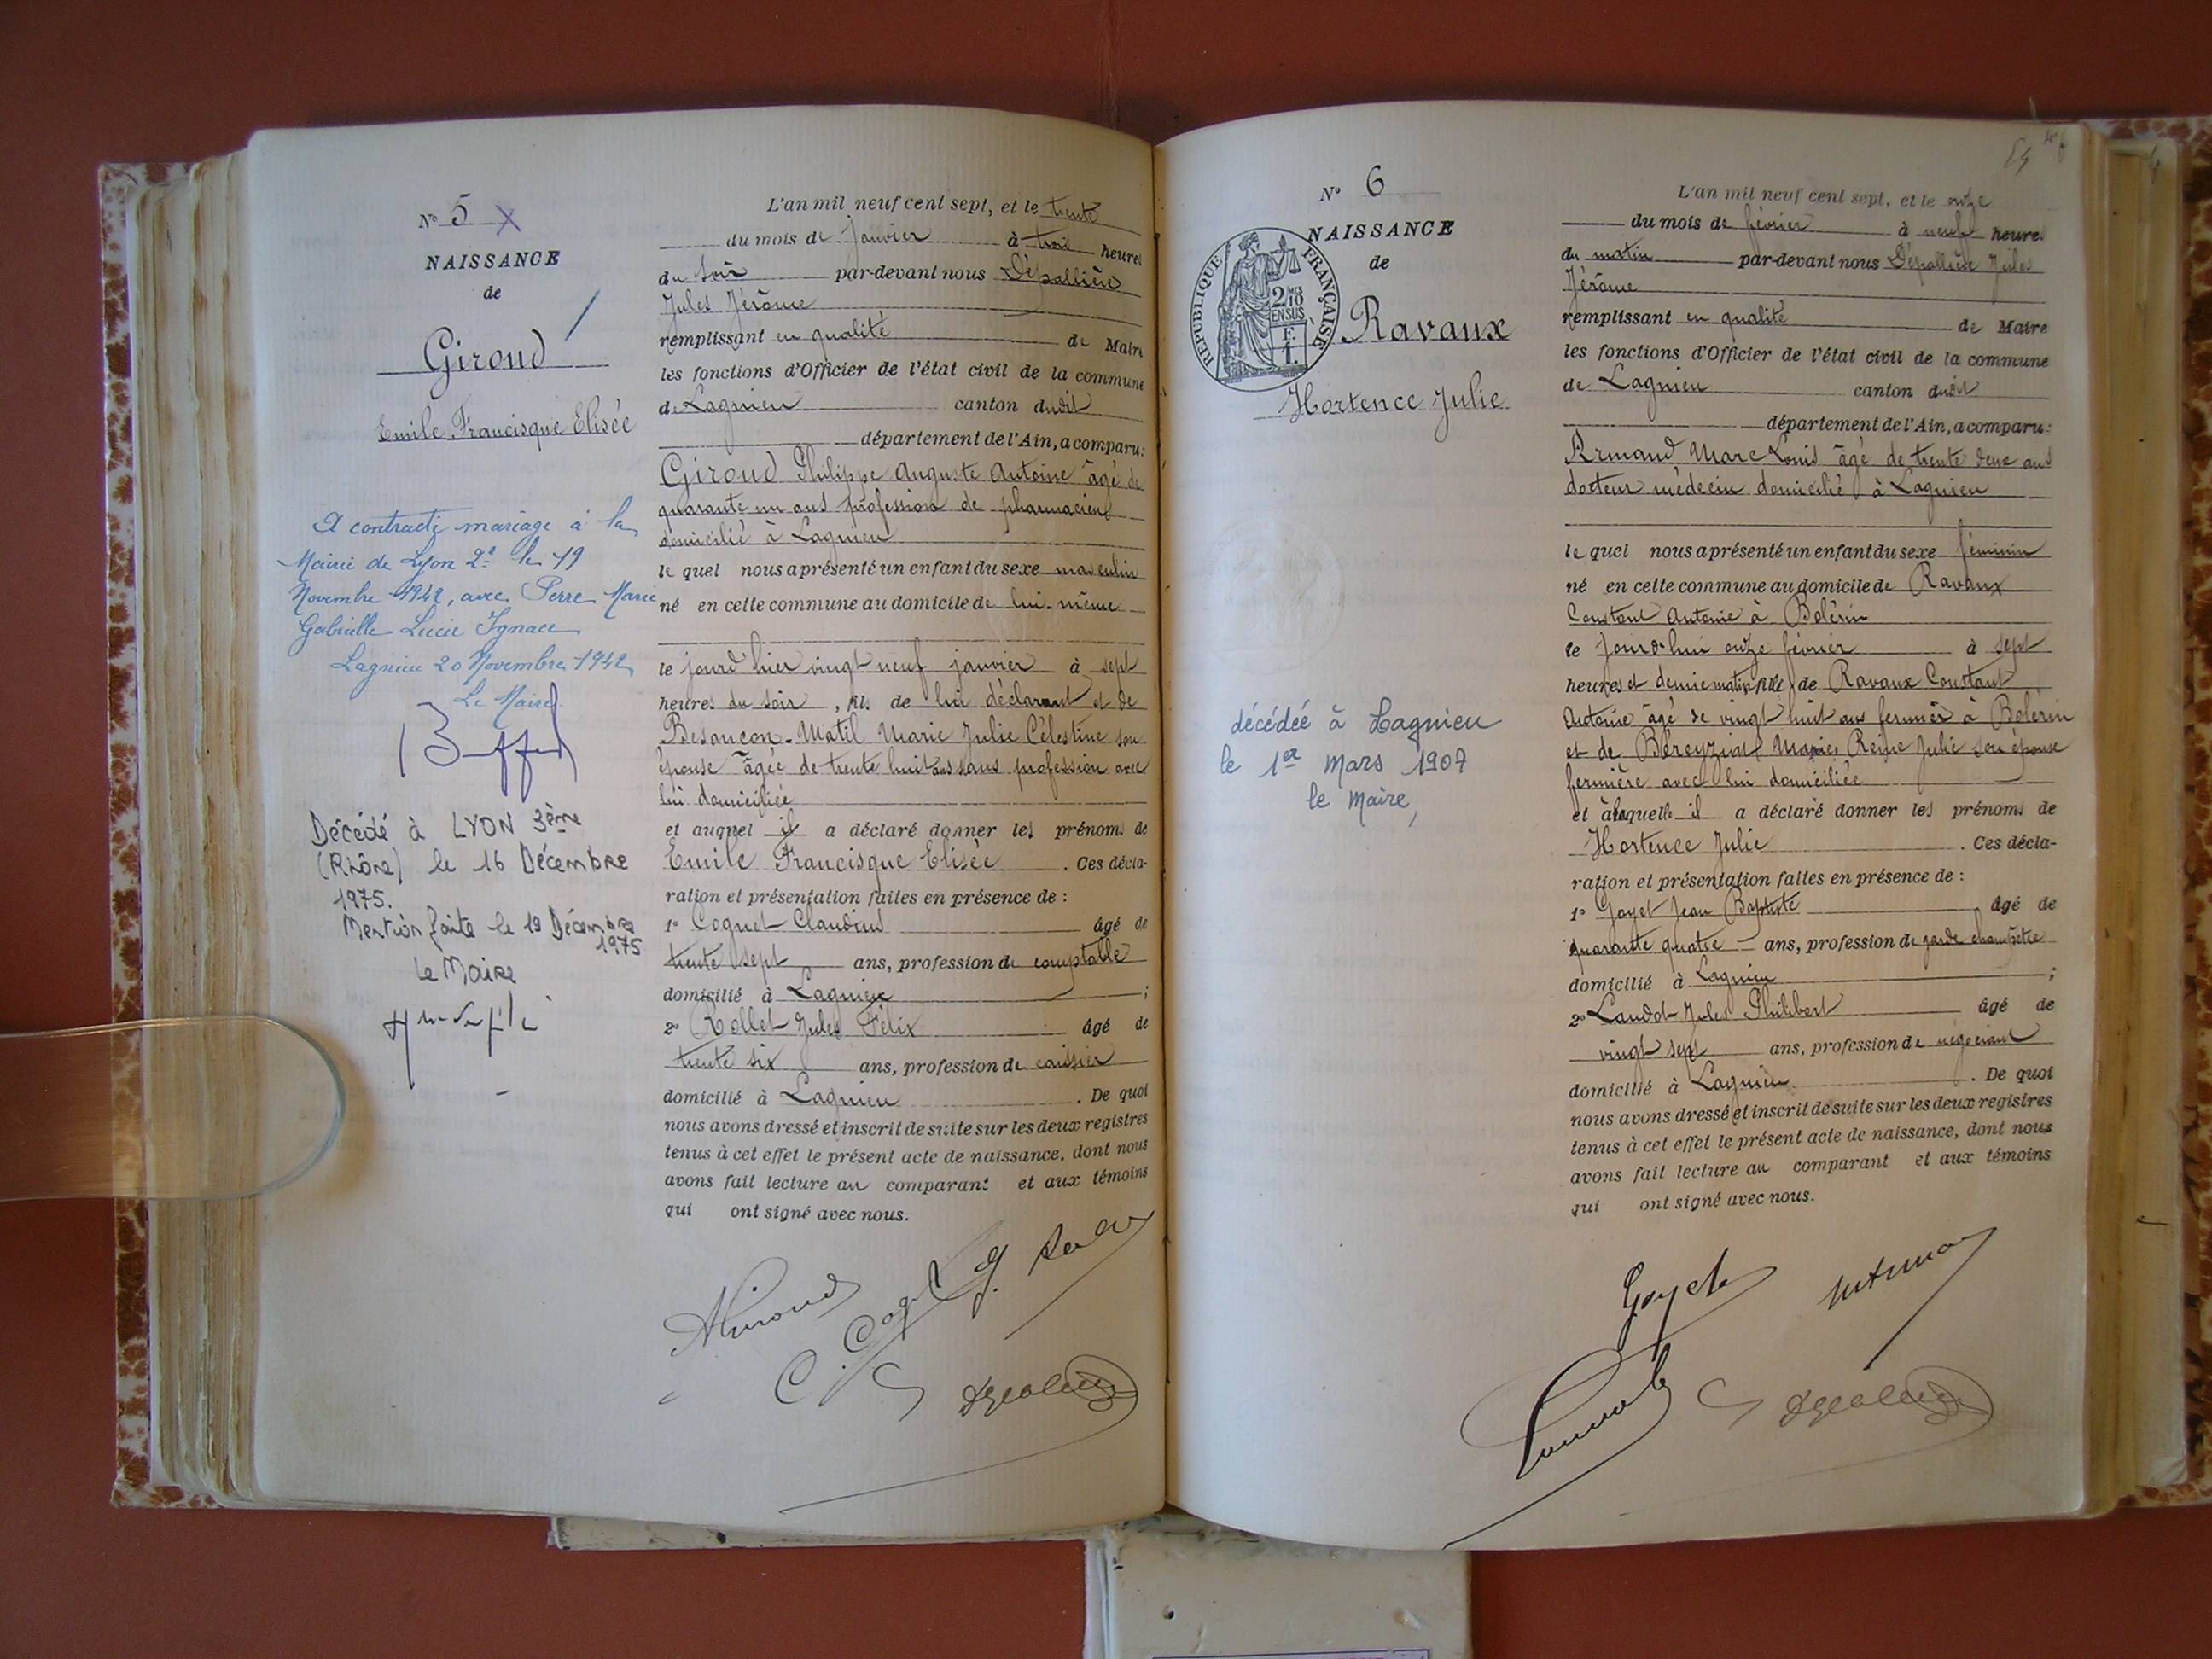 N° 5 X
NAISSANCE
de
Giroud
Emile Francisque Elisée
A contracté mariage à la
Mairie de Lyon 2e le 19
Novembre 1942, avec Perre Marie
Gabrielle Lucie Ignace
Lagnieu 20 Novembre 1942
Le Maire
Décédé à LYON 3ème
(Rhône) le 16 Décembre
1975.
Mention faite le 19 Décembre
1975
le Maire
L'an mil neuf cent sept, et le trente
du mois de janvier à trois heures
du soir par-devant nous Dépallière
Jules Jérôme
remplissant en qualité de Maire
les fonctions d'Officier de l'état civil de la commune
de Lagnieu canton dudit
département de l'Ain, a comparu:
Giroud Philippe Auguste Antoine âgé de
quarante un ans profession de pharmacien
domicilié à Lagnieu
le quel nous a présenté un enfant du sexe masculin
né en cette commune au domicile de lui-même
le jourd'hier vingt neuf janvier à sept
heures du soir, fils de lui déclarant et de
Besançon-Matil Marie Julie Célestine son
épouse âgée de trente huit ans sans profession avec
lui domiciliée
et auquel il a déclaré donner les prénoms de
Emile Francisque Elisée. Ces décla-
ration et présentation faites en présence de :
1° Coquet Claudius âgé de
trente sept ans, profession de comptable
domicilié à Lagnieu ;
2° Rollet Jules Félix âgé de
trente six ans, profession de caissier
domicilié à Lagnieu. De quoi
nous avons dressé et inscrit de suite sur les deux registres
tenus à cet effet le présent acte de naissance, dont nous
avons fait lecture au comparant et aux témoins
qui ont signé avec nous.
AGiroud
N° 6
NAISSANCE
de
RÉPUBLIQUE FRANÇAISE
2/10
EN SUS
F.
1.
Ravaux
Hortence Julie
décédée à Lagnieu
le 1er Mars 1907
le Maire,
L'an mil neuf cent sept, et le onze
du mois de février à neuf heures
du matin par-devant nous Dépallière Jules
Jérôme
remplissant en qualité de Maire
les fonctions d'Officier de l'état civil de la commune
de Lagnieu canton dudit
département de l'Ain, a comparu:
Armand Marc Louis âgé de trente deux ans
docteur médecin domicilié à Lagnieu
le quel nous a présenté un enfant du sexe féminin
né en cette commune au domicile de Ravaux
Constant Antoine à Bolérin
le jourd'hui onze février à sept
heures et demie matin fille de Ravaux Constant
Antoine âgé de vingt huit ans fermier à Bolérin
et de Béreyziat Marie Reine Julie son épouse
fermière avec lui domiciliée
et à laquelle il a déclaré donner les prénoms de
Hortence Julie. Ces décla-
ration et présentation faites en présence de :
1° Goyet Jean Baptiste âgé de
quarante quatre ans, profession de garde champêtre
domicilié à Lagnieu ;
2° Laudot Jules Philibert âgé de
vingt sept ans, profession de négociant
domicilié à Lagnieu. De quoi
nous avons dressé et inscrit de suite sur les deux registres
tenus à cet effet le présent acte de naissance, dont nous
avons fait lecture au comparant et aux témoins
qui ont signé avec nous.
Goyet